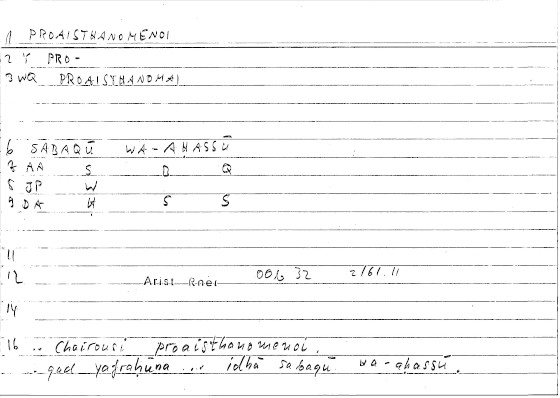 1 PROAISTHANOMENOI
2 Y PRO-
3 WQ PROAISTHANOMAI
6 SABAQŪ WA-AḤASSŪ
7 AA S B Q
8 JP W
9 DA Ḥ S S
11
12 Arist Rhet 006 32 2/61.11
14
16 .. Chairousi proaisthanomenoi.
.. qad yafraḥūna ... idhā sabaqū wa-aḥassū.